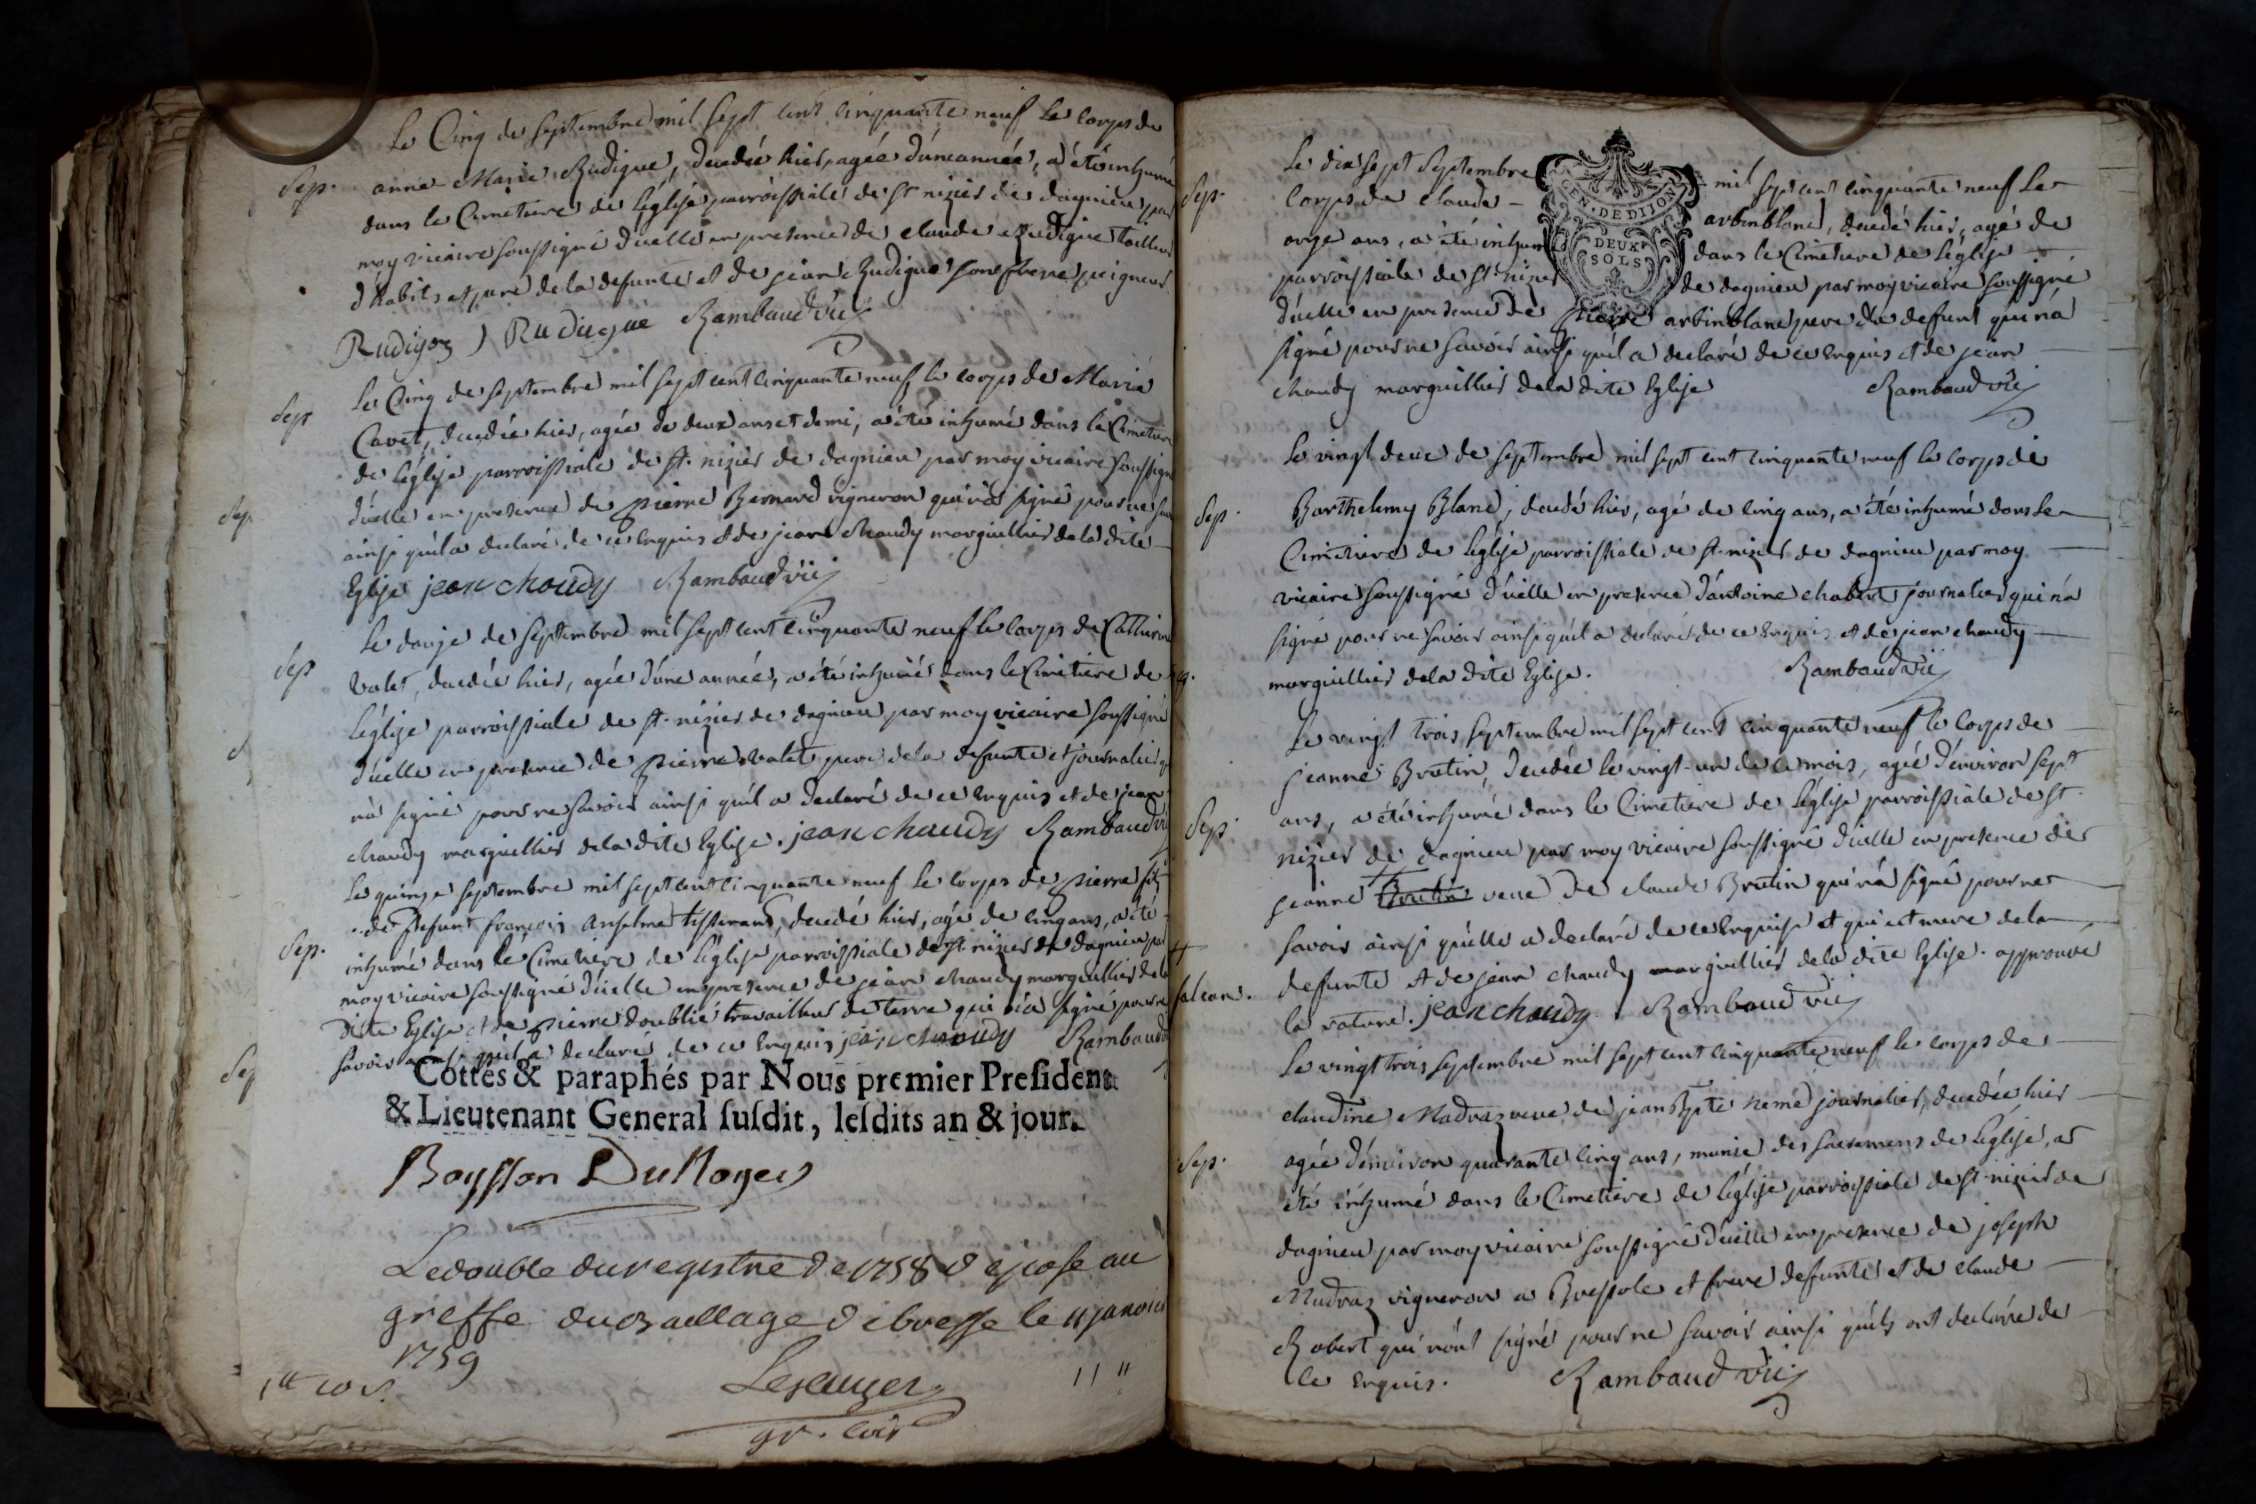 Le Cinq de septembre mil sept cent cinquante neuf le corps de
Sep. anne Marie Rudigue, decedée hier, agée d'une année, a été inhumé
dans le Cimetiere de l'église parroissiale de st nizier de dagnieu par
moy vicaire soussigné d'icelle en presence de claude Rudigue tailleur
d'habits et pere de la defunte et de jean Rudigue son frere peigneur
Rudigoz Rudigue Rambaud vic
Sep Le Cinq de septembre mil sept cent cinquante neuf le corps de Marie
Cavet, decedée hier, agée de deux ans et demi, a été inhumé dans le Cimetiere
de l'église parroissiale de st. nizier de dagnieu par moy vicaire soussigné
d'icelle en presence de pierre Bernard vigneron qui n'a signé pour ne
ainsi qu'il a declaré de ce Enquis et de jean chaudy marguillier de la dite
Eglise jean chaudy Rambaud vic
Sep Le douze de septembre mil sept cent cinquante neuf le corps de Catherine
Valet, decedée hier, agée d'une année, a été inhumée dans le Cimetiere de
l'église parroissiale de st. nizier de dagnieu par moy vicaire soussigné
d'icelle en presence de pierre Valet pere de la defunte et journalier
n'a signé pour ne savoir ainsi qu'il a declaré de ce Enquis et de jean
chaudy marguillier de la dite Eglise. jean chaudy Rambaud vic
Le quinze septembre mil sept cent cinquante neuf le corps de pierre fils
de defunt françois anselme tisserand, decedé hier, agé de cinq ans, a été
Sep. inhumé dans le Cimetiere de l'église parroissiale de st nizier de dagnieu par
moy vicaire soussigné d'icelle en presence de jean chaudy marguillier de la
dite Eglise et de pierre doublié travailleur de terre qui n'a signé pour ne
savoir ainsi qu'il a declaré de ce Enquis jean chaudy Rambaud
Cottés & paraphés par Nous premier Preſident
& Lieutenant General ſuſdit, leſdits an & jour.
Boysson DuNoyer
Le double du registre de 1758 depose au
greffe du bailliage de bresse le 11 janvier
1759
gr.
Sep. Le dix sept septembre mil sept cent cinquante neuf le
corps de claude arbinblanc, decedé hier, agé de
onze ans, a été inhumé dans le Cimetiere de l'église
parroissiale de st nizier de dagnieu par moy vicaire soussigné
d'icelle en presence de pierre arbinblanc pere du defunt qui n'a
signé pour ne savoir ainsi qu'il a declaré de ce Enquis et de jean
chaudy marguillier de la dite Eglise Rambaud vic
CEN. DE DIJON
DEUX
SOLS
Le vingt deux de septembre mil sept cent cinquante neuf le corps de
Sep. Barthelemy Blanc, decedé hier, agé de cinq ans, a été inhumé dans le
Cimetiere de l'église parroissiale de st. nizier de dagnieu par moy
vicaire soussigné d'icelle en presence d'antoine chabert journalier qui n'a
signé pour ne savoir ainsi qu'il a declaré de ce Enquis et de jean chaudy
marguillier de la dite Eglise. Rambaud vic
Le vingt trois septembre mil sept cent cinquante neuf le corps de
jeanne Brutin, decedée le vingt-un de ce mois, agée d'environ sept
Sep. ans, a été inhumée dans le Cimetiere de l'église parroissiale de st
nizier de dagnieu par moy vicaire soussigné d'icelle en presence de
jeanne Brutin veue de claude Brutin qui n'a signé pour ne
savoir ainsi qu'elle a declaré de ce Enquise et qui est mere de la
falcon. defunte et de jean chaudy marguillier de la dite Eglise. approuvé
la rature. jean chaudy Rambaud vic
Le vingt trois septembre mil sept cent cinquante neuf le corps de
claudine Madraz veue de jean Bpte neme journalier, decedée hier
Sep. agée d'environ quarante cinq ans, munie des sacremens de l'église, a
été inhumé dans le Cimetiere de l'église parroissiale de st nizier de
dagnieu par moy vicaire soussigné d'icelle en presence de joseph
Madraz vigneron a Bressole et frere defunte et de claude
Robert qui n'ont signé pour ne savoir ainsi qu'ils ont declaré de
ce Enquis. Rambaud vic